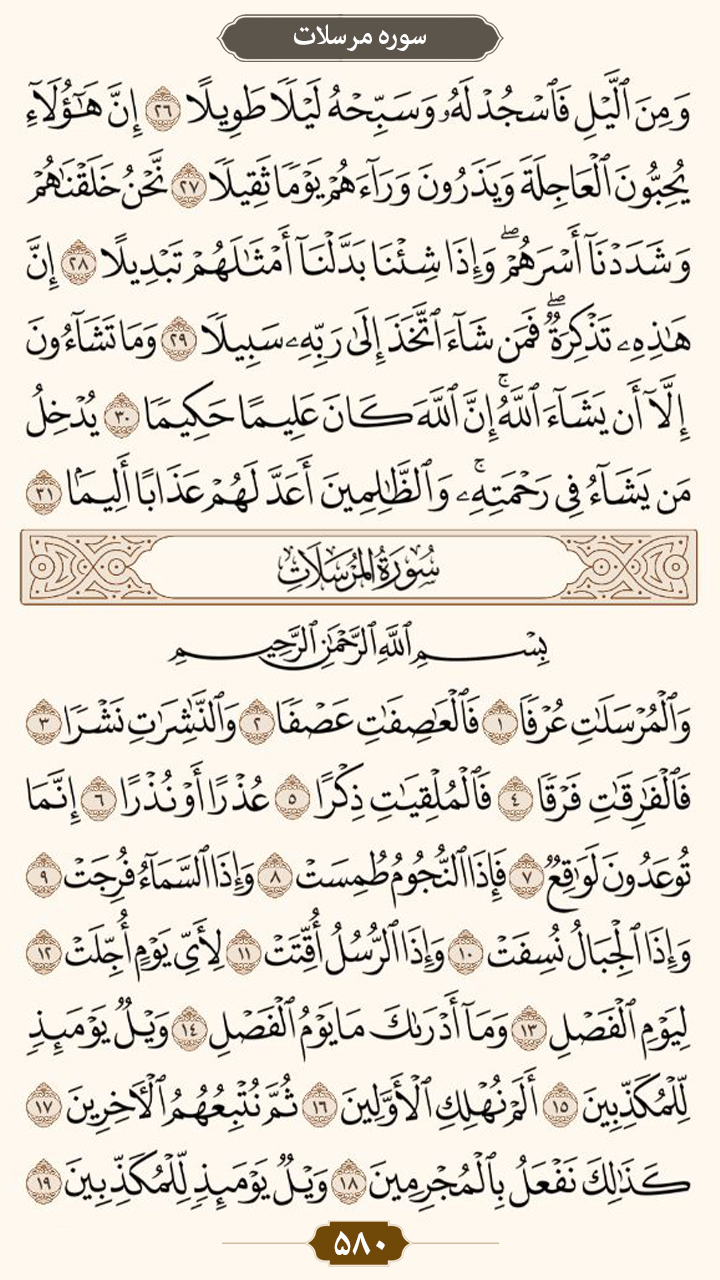 سوره مرسلات
وَمِنَ ٱلَّيۡلِ فَٱسۡجُدۡ لَهُۥ وَسَبِّحۡهُ لَيۡلٗا طَوِيلًا ٢٦ إِنَّ هَـٰٓؤُلَآءِ
يُحِبُّونَ ٱلۡعَاجِلَةَ وَيَذَرُونَ وَرَآءَهُمۡ يَوۡمٗا ثَقِيلٗا ٢٧ نَّحۡنُ خَلَقۡنَٰهُمۡ
وَشَدَدۡنَآ أَسۡرَهُمۡۖ وَإِذَا شِئۡنَا بَدَّلۡنَآ أَمۡثَٰلَهُمۡ تَبۡدِيلًا ٢٨ إِنَّ
هَٰذِهِۦ تَذۡكِرَةٞۖ فَمَن شَآءَ ٱتَّخَذَ إِلَىٰ رَبِّهِۦ سَبِيلٗا ٢٩ وَمَا تَشَآءُونَ
إِلَّآ أَن يَشَآءَ ٱللَّهُۚ إِنَّ ٱللَّهَ كَانَ عَلِيمًا حَكِيمٗا ٣٠ يُدۡخِلُ
مَن يَشَآءُ فِي رَحۡمَتِهِۦۚ وَٱلظَّٰلِمِينَ أَعَدَّ لَهُمۡ عَذَابًا أَلِيمَۢا ٣١
سُورَةُ المُرۡسَلَاتِ
بِسۡمِ ٱللَّهِ ٱلرَّحۡمَٰنِ ٱلرَّحِيمِ
وَٱلۡمُرۡسَلَٰتِ عُرۡفٗا ١ فَٱلۡعَٰصِفَٰتِ عَصۡفٗا ٢ وَٱلنَّٰشِرَٰتِ نَشۡرٗا ٣
فَٱلۡفَٰرِقَٰتِ فَرۡقٗا ٤ فَٱلۡمُلۡقِيَٰتِ ذِكۡرًا ٥ عُذۡرًا أَوۡ نُذۡرًا ٦ إِنَّمَا
تُوعَدُونَ لَوَٰقِعٞ ٧ فَإِذَا ٱلنُّجُومُ طُمِسَتۡ ٨ وَإِذَا ٱلسَّمَآءُ فُرِجَتۡ ٩
وَإِذَا ٱلۡجِبَالُ نُسِفَتۡ ١٠ وَإِذَا ٱلرُّسُلُ أُقِّتَتۡ ١١ لِأَيِّ يَوۡمٍ أُجِّلَتۡ ١٢
لِيَوۡمِ ٱلۡفَصۡلِ ١٣ وَمَآ أَدۡرَىٰكَ مَا يَوۡمُ ٱلۡفَصۡلِ ١٤ وَيۡلٞ يَوۡمَئِذٖ
لِّلۡمُكَذِّبِينَ ١٥ أَلَمۡ نُهۡلِكِ ٱلۡأَوَّلِينَ ١٦ ثُمَّ نُتۡبِعُهُمُ ٱلۡأٓخِرِينَ ١٧
كَذَٰلِكَ نَفۡعَلُ بِٱلۡمُجۡرِمِينَ ١٨ وَيۡلٞ يَوۡمَئِذٖ لِّلۡمُكَذِّبِينَ ١٩
۵۸۰